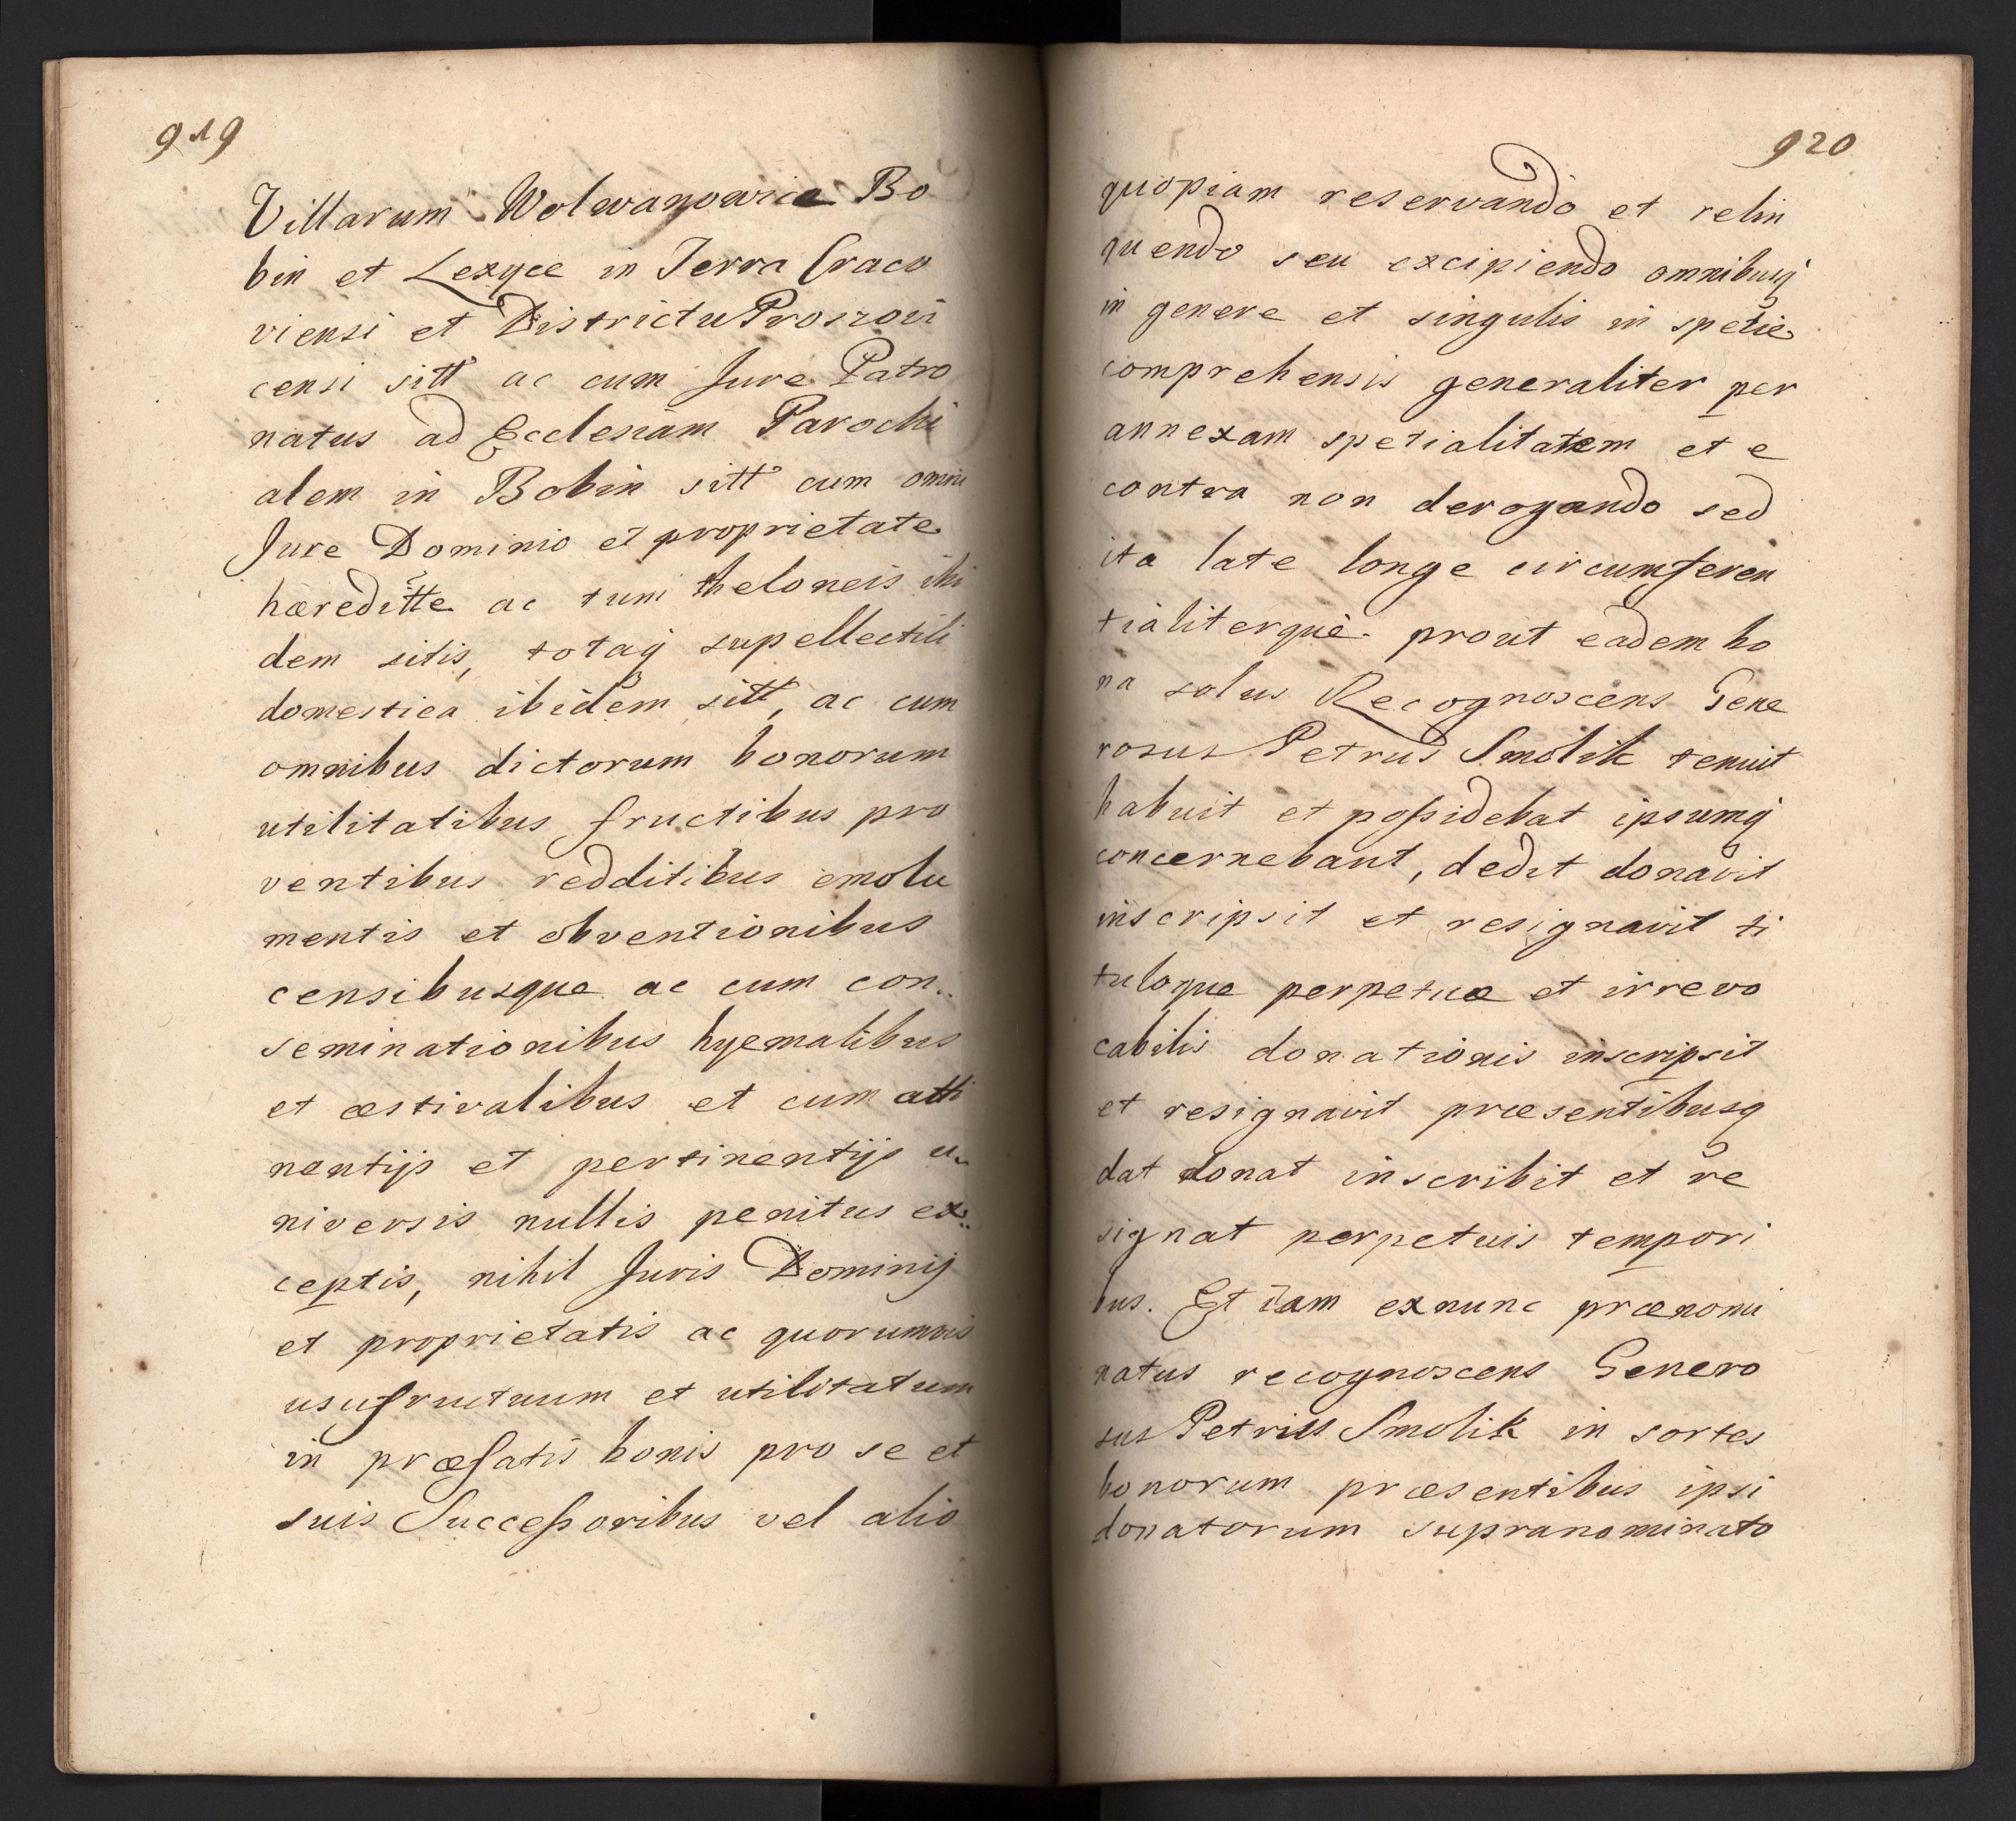 919
Villarum Wolwanowice Bo
bin et Lexyce in Terra Craco
viensi et Districtu Proszovi
censi sitt ac cum Jure Patro
natus ad Ecclesiam Parochi
alem in Bobin sitt cum omni
Jure Dominio et proprietate
hæreditte ac tum theloneis ibi
dem sitis, totaq supellectili
domestica ibidem sitt, ac cum
omnibus dictorum bonorum
utilitatibus fructibus pro
ventibus redditibus emolu
mentis et obventionibus
censibusque ac cum con..
seminationibus hyemalibus
et æstivalibus et cum atti
nentijs et pertinentijs u..
niversis nullis penitus ex..
ceptis, nihil Juris Dominij
et proprietatis ac quorumvis
usufructuum et utilitatum
in præfatis bonis pro se et
suis Successoribus vel alio
920
quopiam reservando et relin
quendo seu excipiendo omnibusq
in genere et singulis in spetie
comprehensis generaliter per
annexam spetialitatem et e
contra non derogando sed
ita late longe circumferen
tialiterque prout eadem bo
na solus Recognoscens Gene
rosus Petrus Smolik tenuit
habuit et possidebat ipsumq
concernebant, dedit donavit
inscripsit et resignavit ti
tuloque perpetuæ et irrevo
cabilis donationis inscripsit
et resignavit præsentibusq
dat donat inscribit et re
signat perpetuis tempori
bus. Et iam exnunc prænomi
natus recognoscens Genero
sus Petrus Smolik in sortes
bonorum præsentibus ipsi
donatorum supranominato